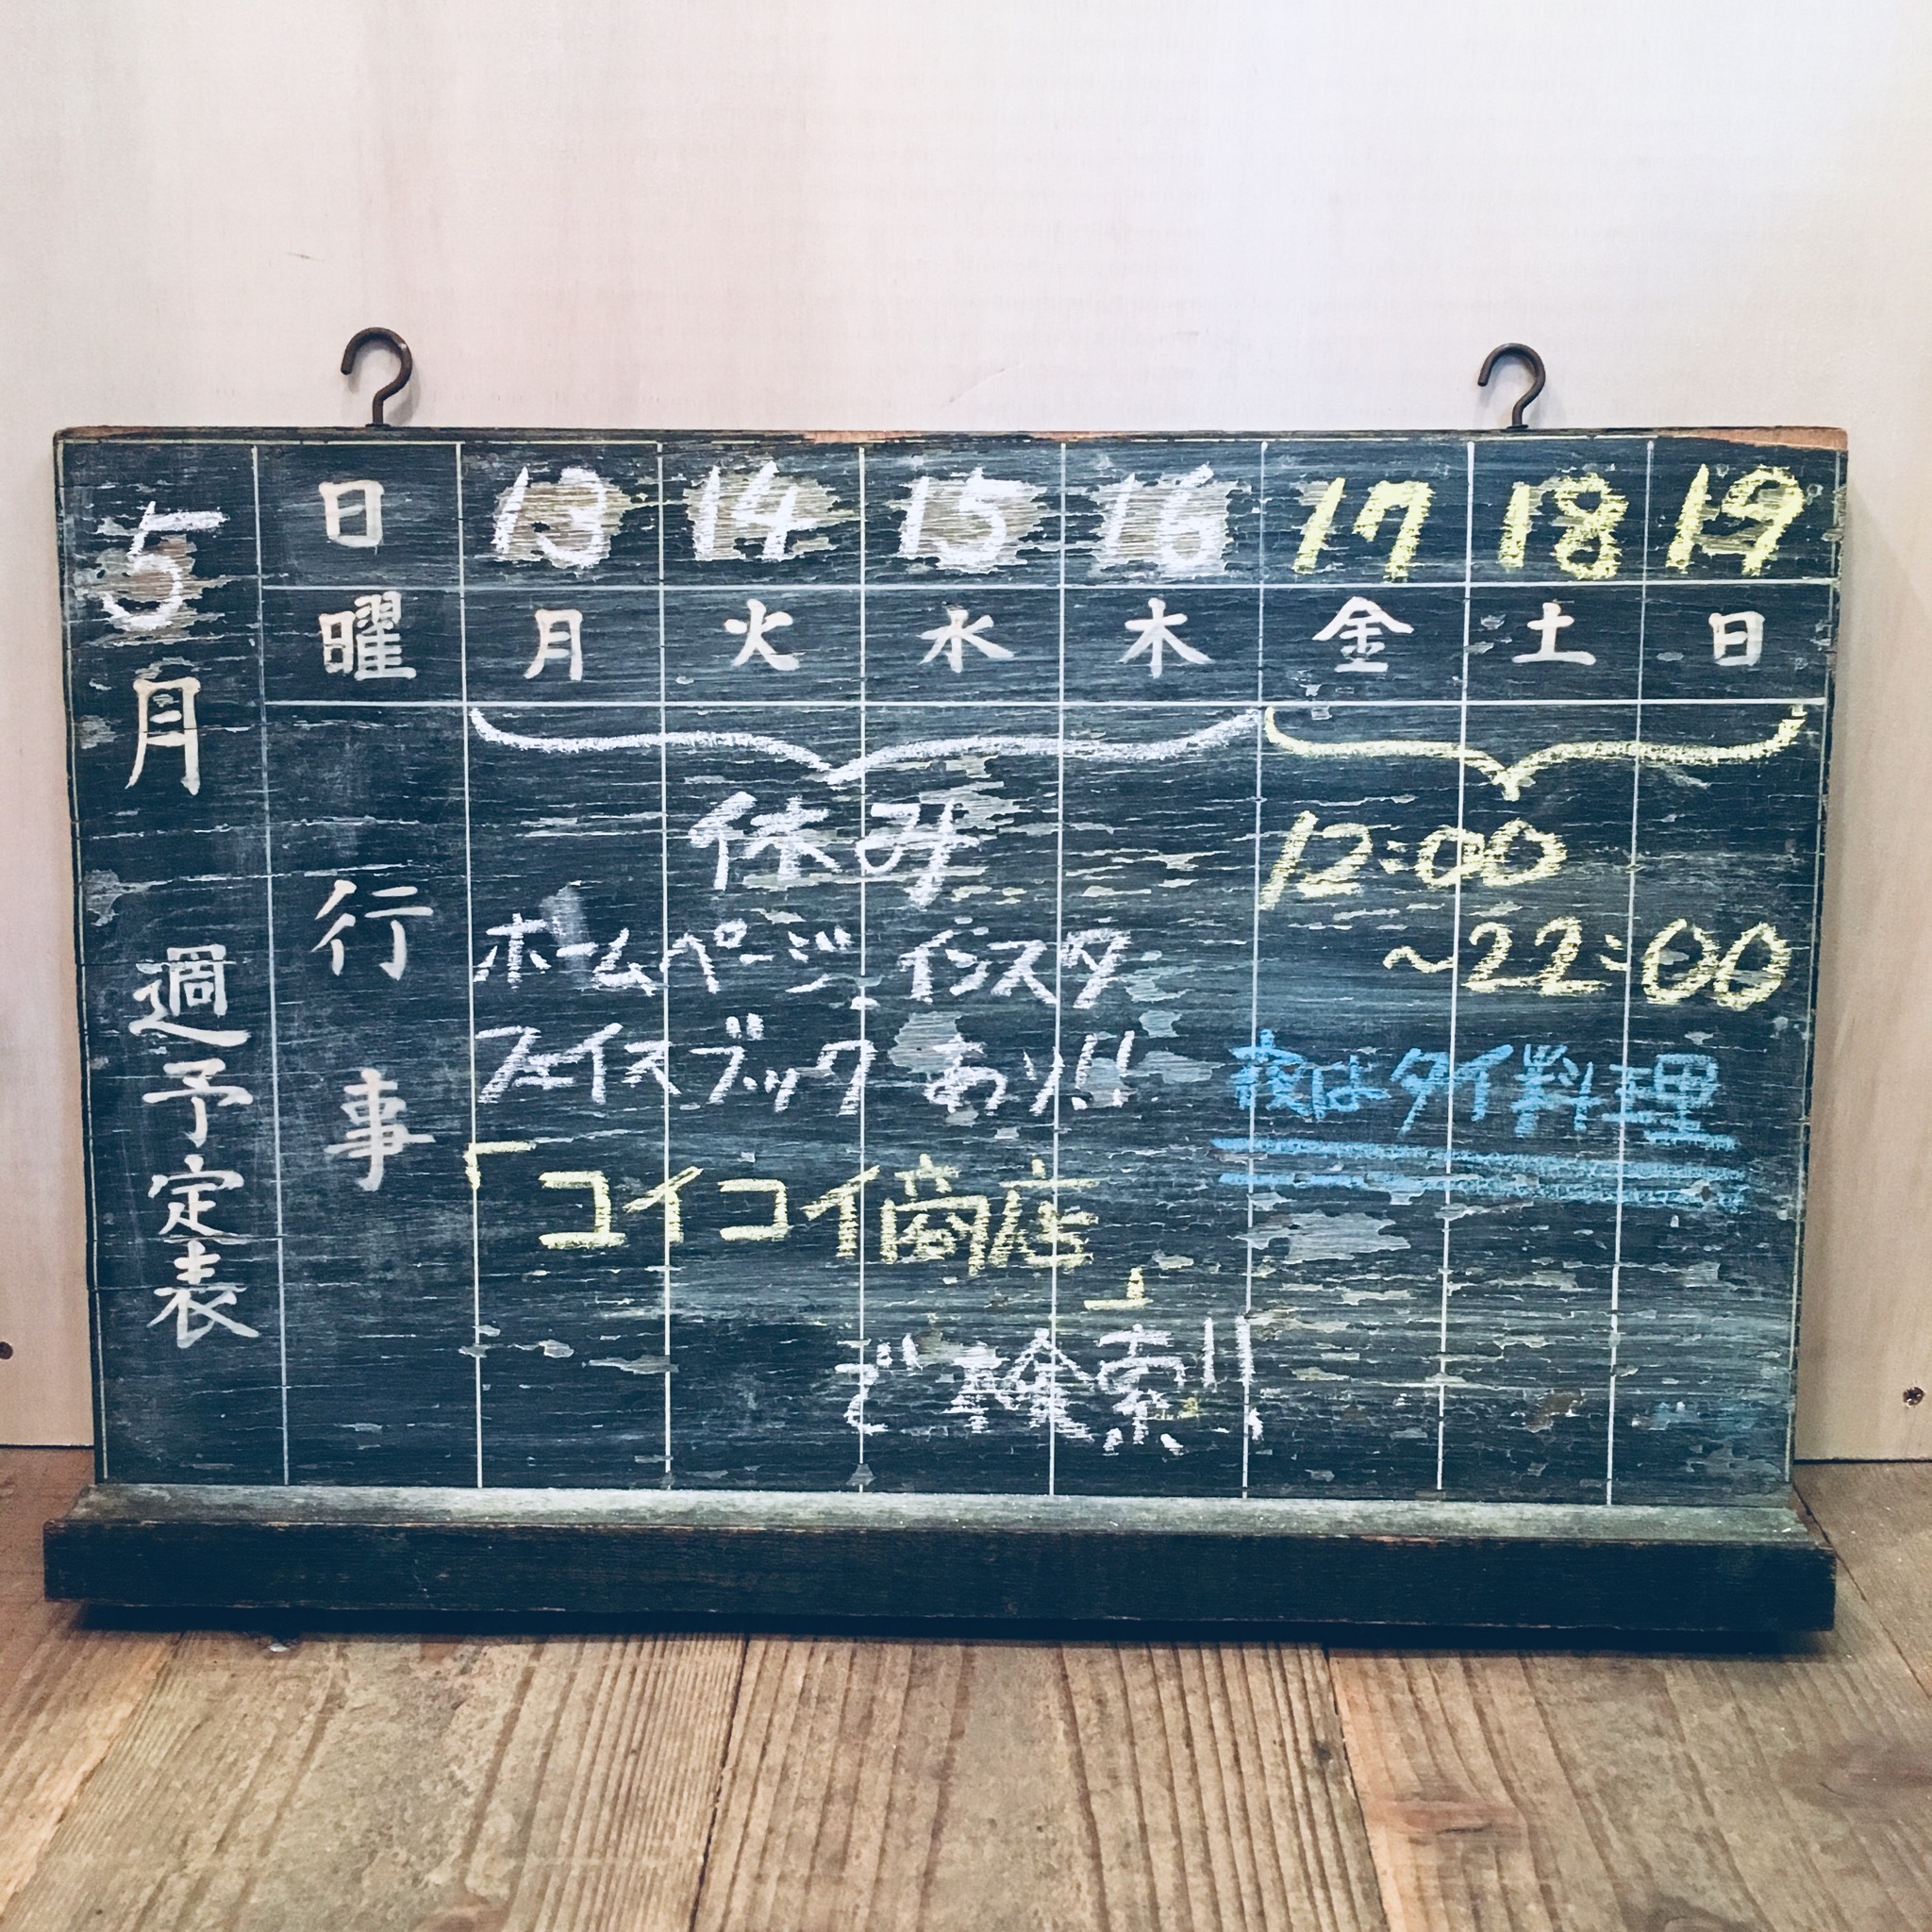 5月 週予定表
日 13 14 15 16 17 18 19
曜 月 火 水 木 金 土 日
行事
休み
ホームページ、インスタ
フェイスブック あり!!
「コイコイ商店」
で検索!!
12:00
~22:00
夜はタイ料理